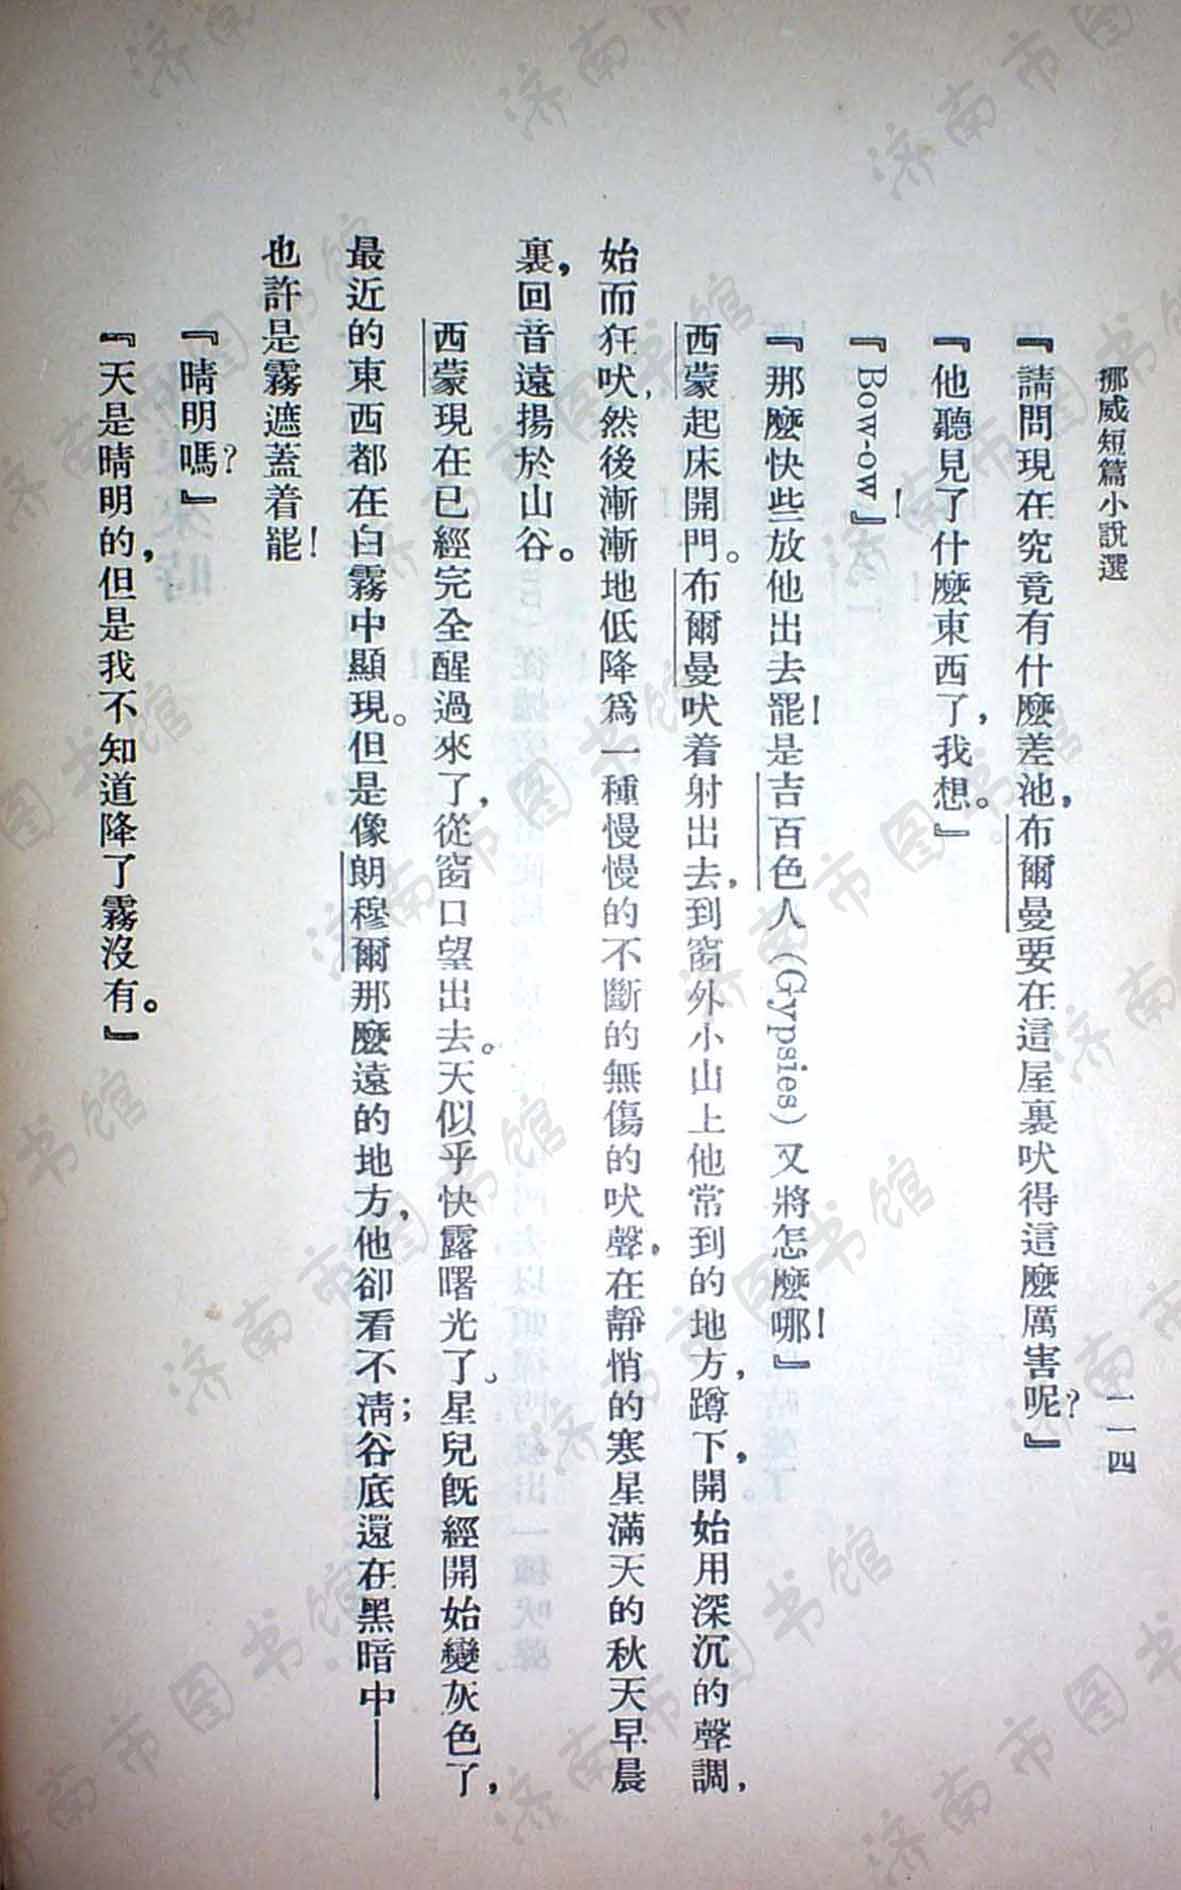 挪威短篇小說選
一一四
『請問現在究竟有什麼差池,布爾曼要在這屋裏吠得這麼厲害呢?』
『他聽見了什麼東西了,我想。』
『Bow-ow!』
『那麼快些放他出去罷!是吉百色人(Gypsies)又將怎麼哪!』
西蒙起床開門。布爾曼吠着射出去,到窗外小山上他常到的地方,蹲下,開始用深沉的聲調,
始而狂吠,然後漸漸地低降爲一種慢慢的不斷的無傷的吠聲,在靜悄的寒星滿天的秋天早晨
裏,回音遠揚於山谷。
西蒙現在已經完全醒過來了,從窗口望出去。天似乎快露曙光了。星兒既經開始變灰色了,
最近的東西都在白霧中顯現。但是像朗穆爾那麼遠的地方,他卻看不清;谷底還在黑暗中——
也許是霧遮蓋着罷!
『晴明嗎?』
『天是晴明的,但是我不知道降了霧沒有。』
济南市图书馆